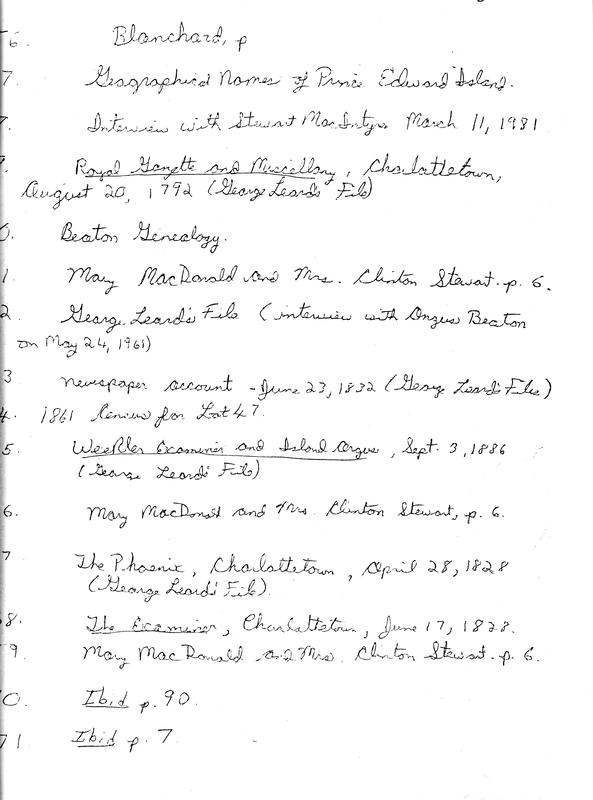 6. Blanchard, p
7. Geographical Names of Prince Edward Island.
7. Interview with Stewart MacIntyre March 11, 1981
9. Royal Gazette and Miscellany, Charlottetown,
August 20, 1792 (George Leard's File)
0. Beaton Genealogy.
1. Mary MacDonald and Mrs. Clinton Stewart. p. 6.
2. George Leard's File (interview with Angus Beaton
on May 24, 1961)
3 newspaper account - June 23, 1832 (George Leard's Files)
4. 1861 Census for Lot 47.
5. Weekler Examiner and Island Argus, Sept. 3, 1886
(George Leard's File)
6. Mary MacDonald and Mrs. Clinton Stewart, p. 6.
7 The Phoenix, Charlottetown, April 28, 1828
(George Leard's File).
8. The Examiner, Charlottetown, June 17, 1828.
9. Mary MacDonald and Mrs. Clinton Stewart. p. 6.
0. Ibid p. 90.
71. Ibid p. 7